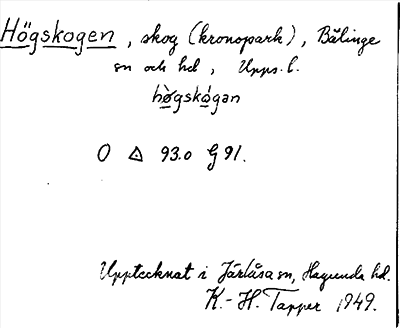 Högskogen, skog (kronopark), Bälinge
sn och hd, Upps. l.
hò̱gskó̱gan
O △ 93.0 G 91.
Upptecknat i Järlåsa sn, Hagunda hd.
K.-H. Tapper 1949.